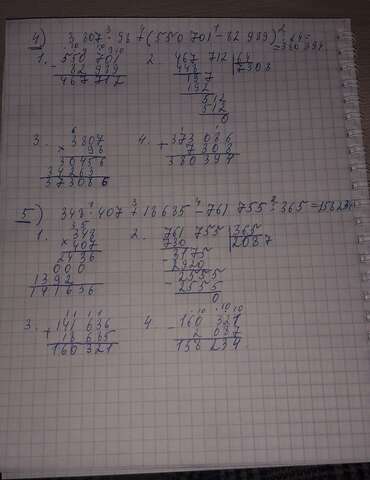 4) 3807 · 98 + (550 701 - 82 989) : 64 = 380 394
1. 550 701
- 82 989
467 712
2. 467 712 | 64
448 | 7308
197
192
512
512
0
3. 3807
× 98
30456
34263
373086
4. 373 086
+ 7 308
380 394
5) 348 · 407 + 18 685 - 761 755 : 365 = 158 234
1. 348
× 407
2436
000
1392
141636
2. 761 755 | 365
730 | 2087
- 3175
2920
- 2555
2555
0
3. 141 636
+ 18 685
160 321
4. 160 321
- 2 087
158 234